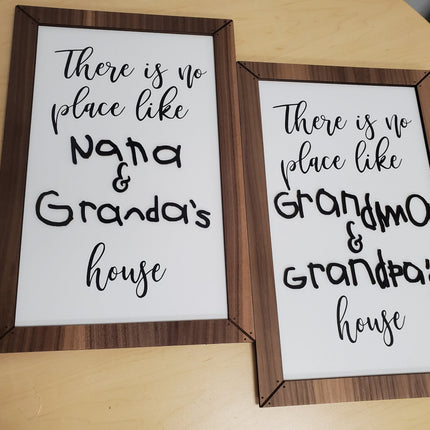 There is no
place like
Nana
&
Granda's
house
There is no
place like
Grandma
&
Grandpa's
house